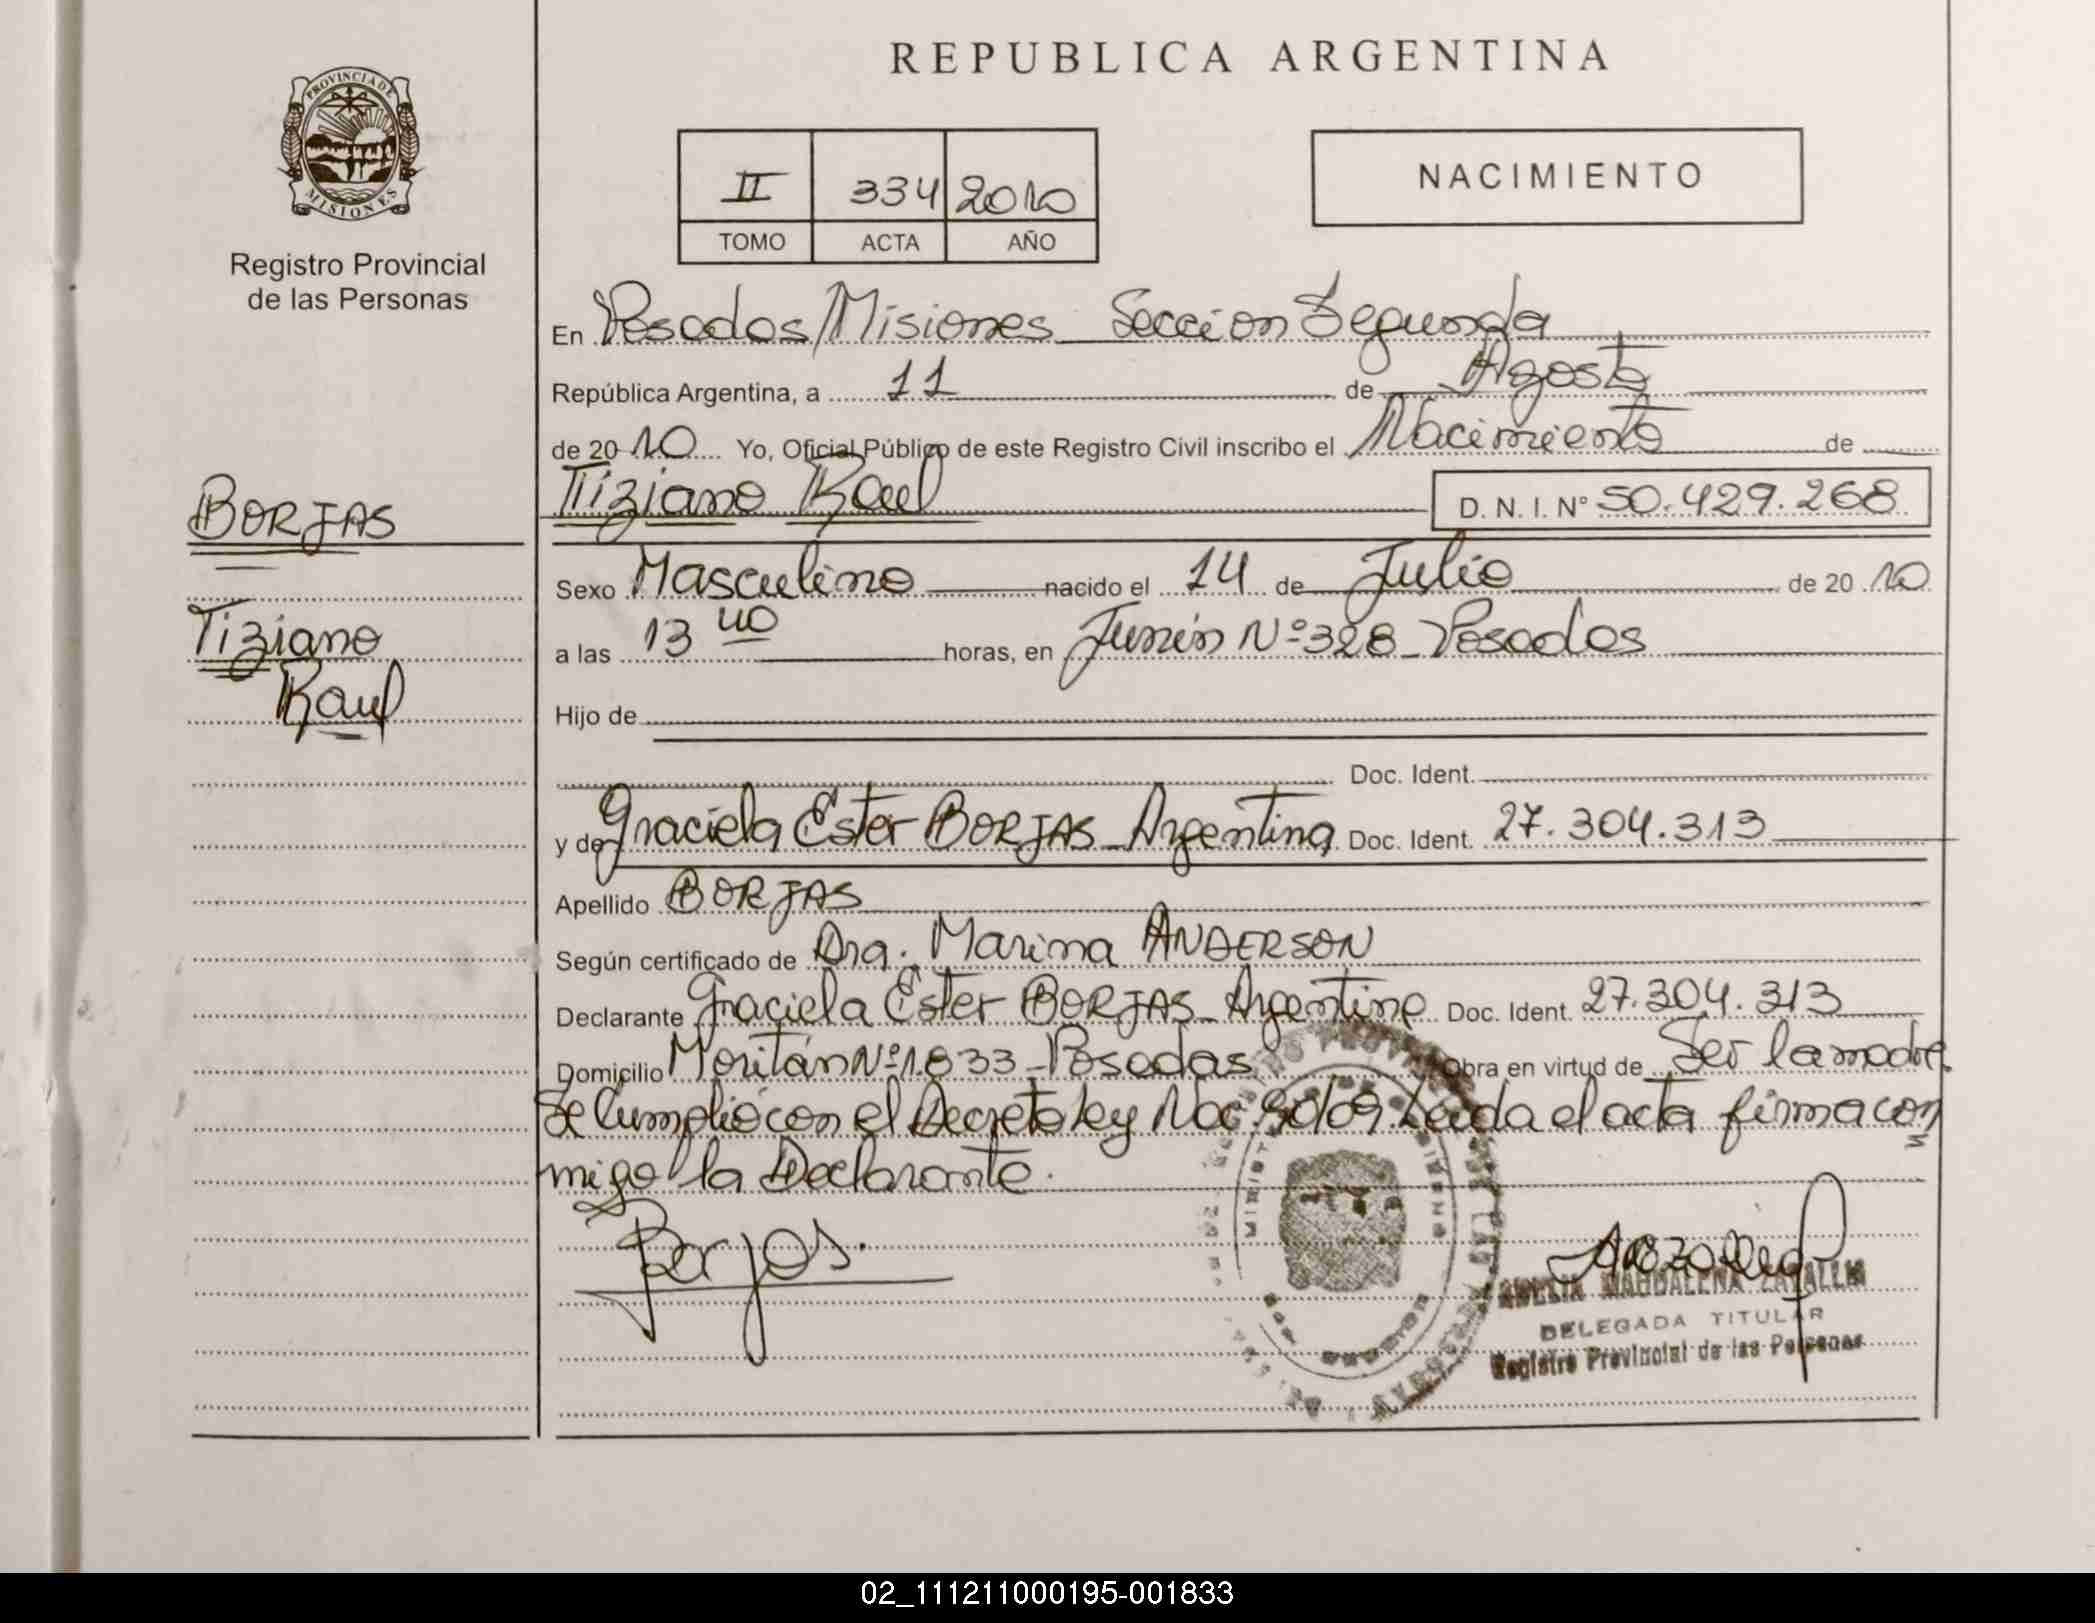 REPUBLICA ARGENTINA
PROVINCIA DE
MISIONES
Registro Provincial
de las Personas
II 334 2010
TOMO ACTA AÑO
NACIMIENTO
En Posadas/Misiones Seccion Segunda
República Argentina, a 11 de Agosto
de 2010 Yo, Oficial Público de este Registro Civil inscribo el Nacimiento de
BORJAS
Tiziano Raul
D. N. I. N° 50.429.268
Sexo Masculino nacido el 14 de Julio de 2010
Tiziano
Raul
a las 13 40 horas, en Junín Nº 328 - Posadas
Hijo de
Doc. Ident.
y de Graciela Ester BORJAS - Argentina Doc. Ident. 27.304.313
Apellido BORJAS
Según certificado de Dra. Marina ANDERSON
Declarante Graciela Ester BORJAS - Argentina Doc. Ident. 27.304.313
Domicilio Moritán Nº 1833 - Posadas Obra en virtud de Ser la madre
Se Cumplió con el Decreto ley Nac. 90/09. Leida el acta firma con
migo la Declarante.
Borjas.
MAGDALENA
DELEGADA TITULAR
Registro Provincial de las Personas
02_111211000195-001833